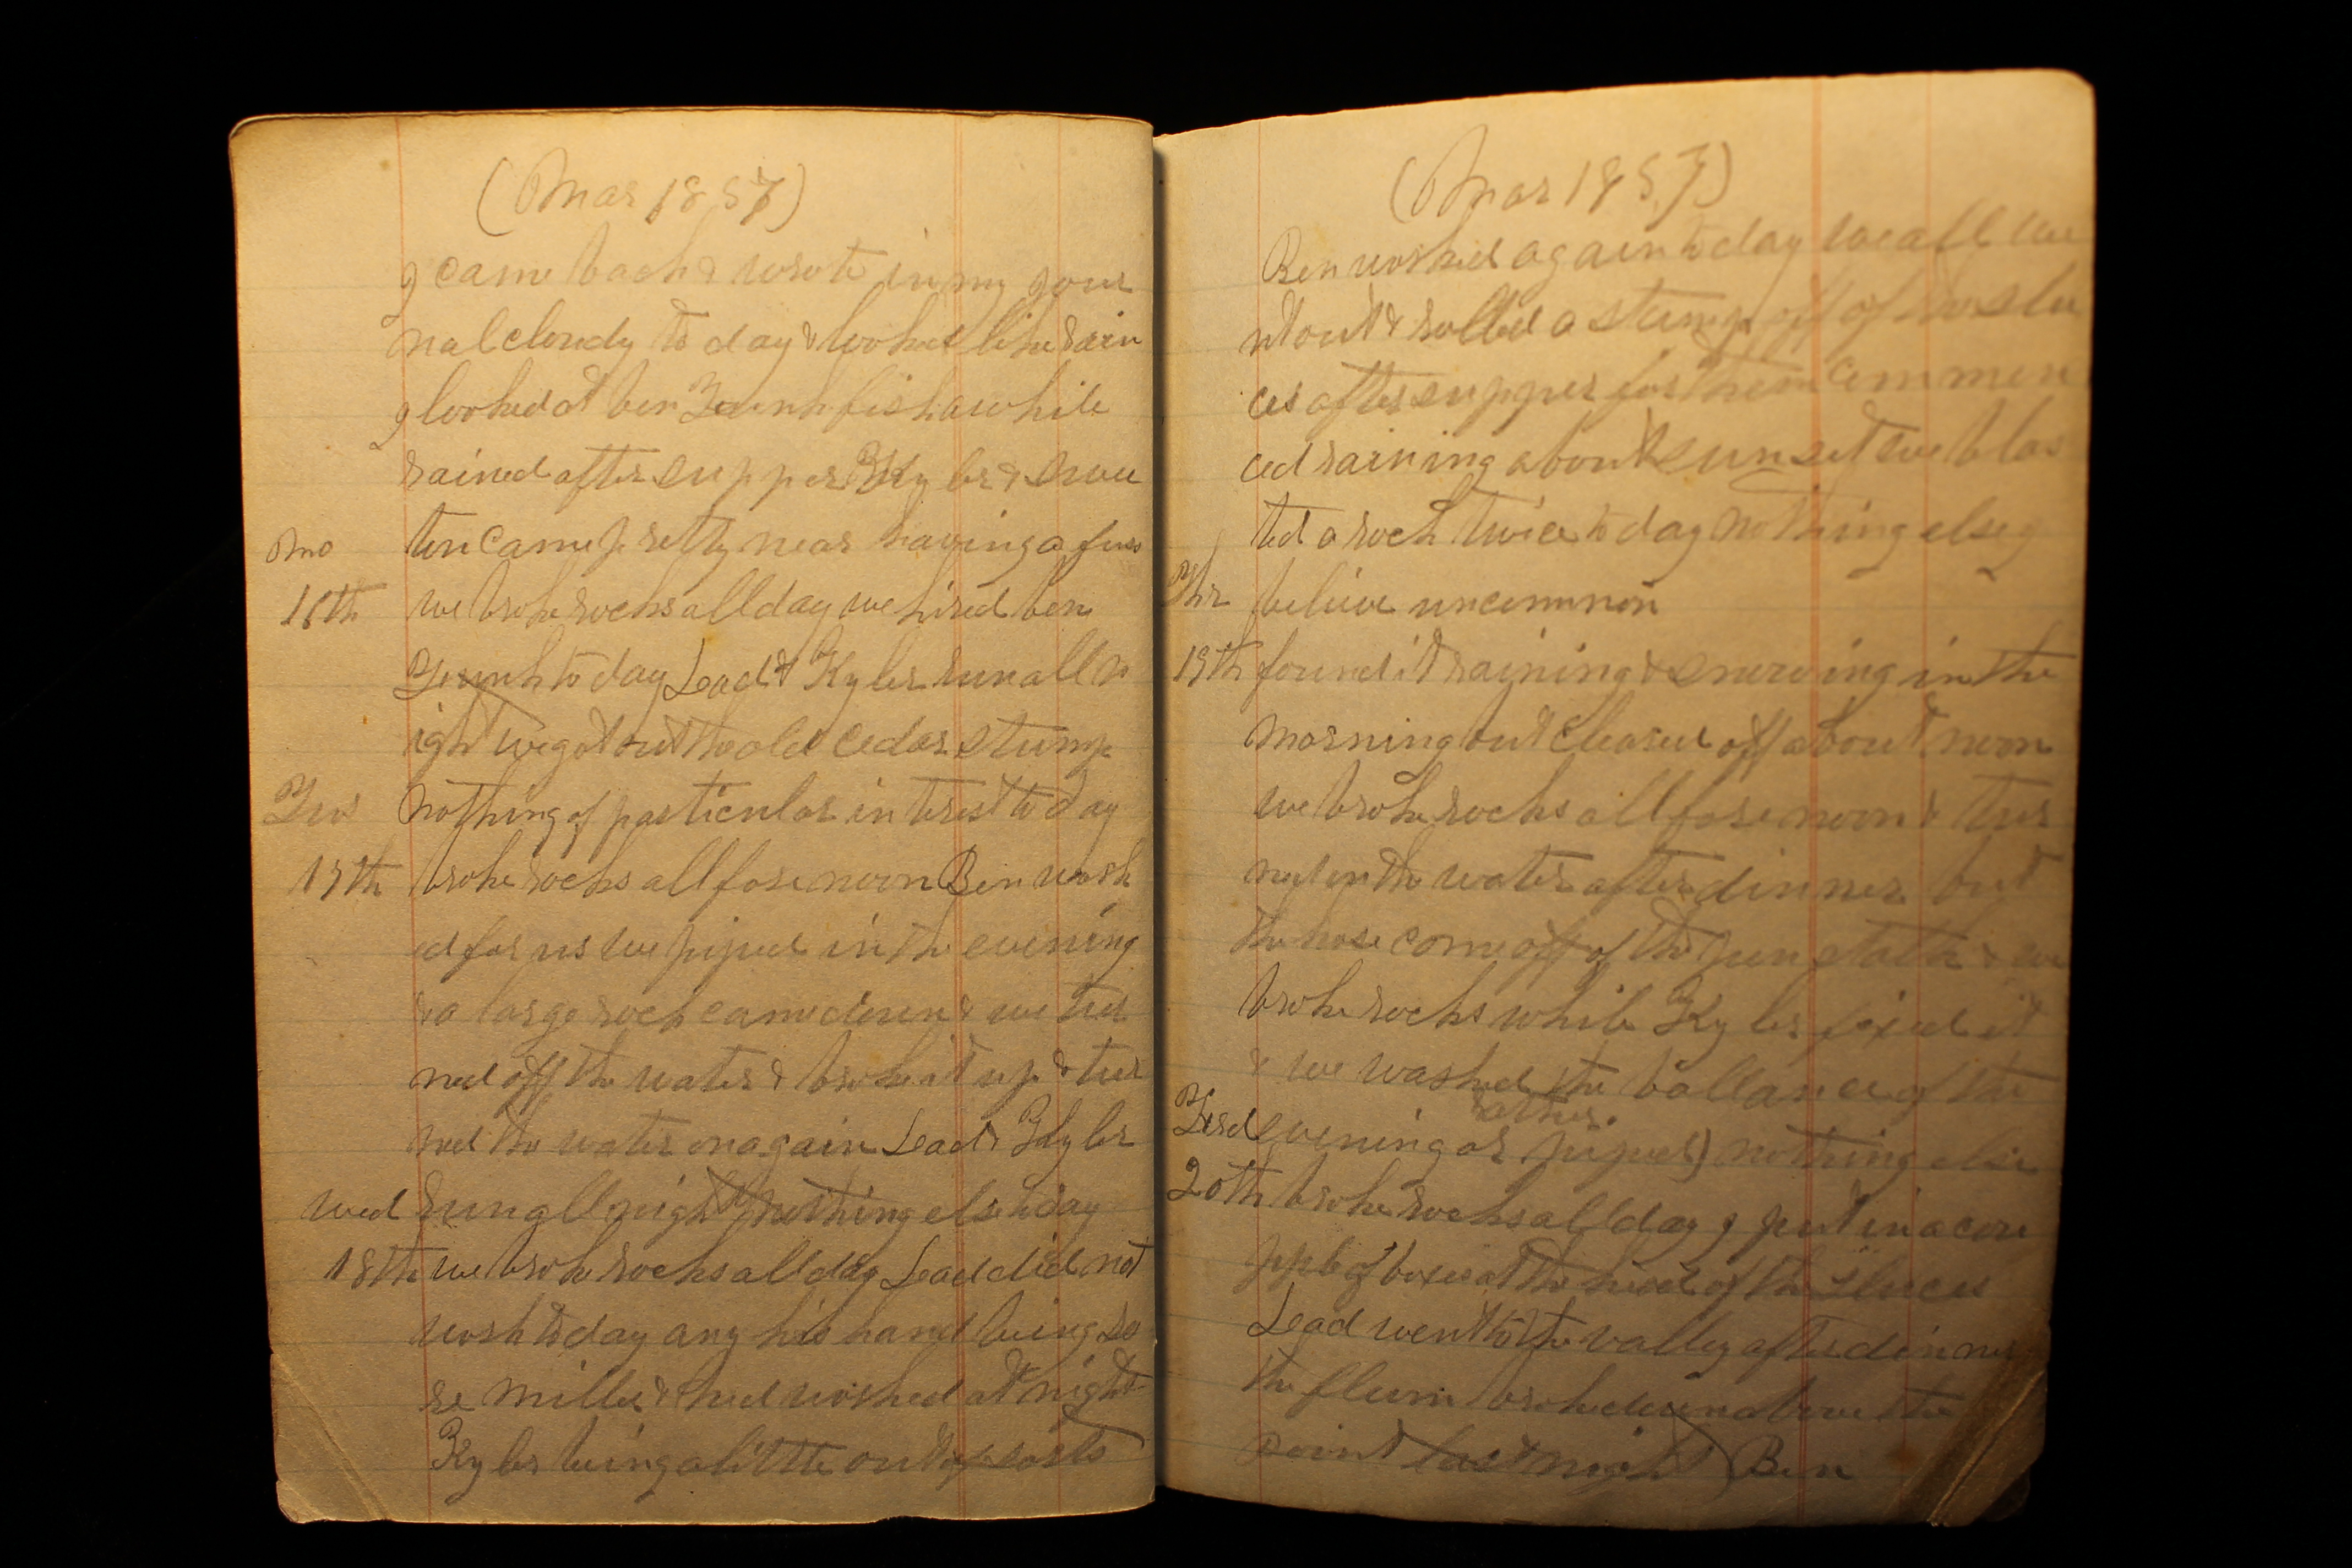 (Mar 1857)
I came back & wrote in my jour
nal cloudy to day & looked like rain
I looked at ben fish awhile
rained after supper Kyler &
ten came pretty near having a fuss
Mo
16th we broke rocks all day we hired ben
to day Lead & Kyler run all n
ight we got out the old cedar stump
Tus nothing of particular interest to day
17th broke rocks all fore noon Ben work
ed for us we piped in the evening
& a large rock came down & we tur
ned off the water & broke it up & tur
ned the water on again Lead & Kyler
wed run all night nothing else to day
18th we broke rocks all day Lead did not
work to day any his hand being so
re Miller & worked at night
Kyler being a little out of sorts
(Mar 1857)
Ben worked again to day we all we
nt out & rolled a stump off of the slu
ces after supper for them commen
ced raining about sunset we blas
ted a rock twice to day nothing else I
Thr believe uncommon
19th found it raining & snowing in the
morning but cleared off about noon
we broke rocks all fore noon & tur
ned on the water after dinner but
the hose come off of the & we
broke rocks while Kyler fixed it
& we washed the ballance of the
rather
evening or piped) nothing else
20th broke rocks all day I put in a cou
pple of boxes at the head of the sluces
Lead went to the valley after dinner
the flume broke down above the
point last night Ben